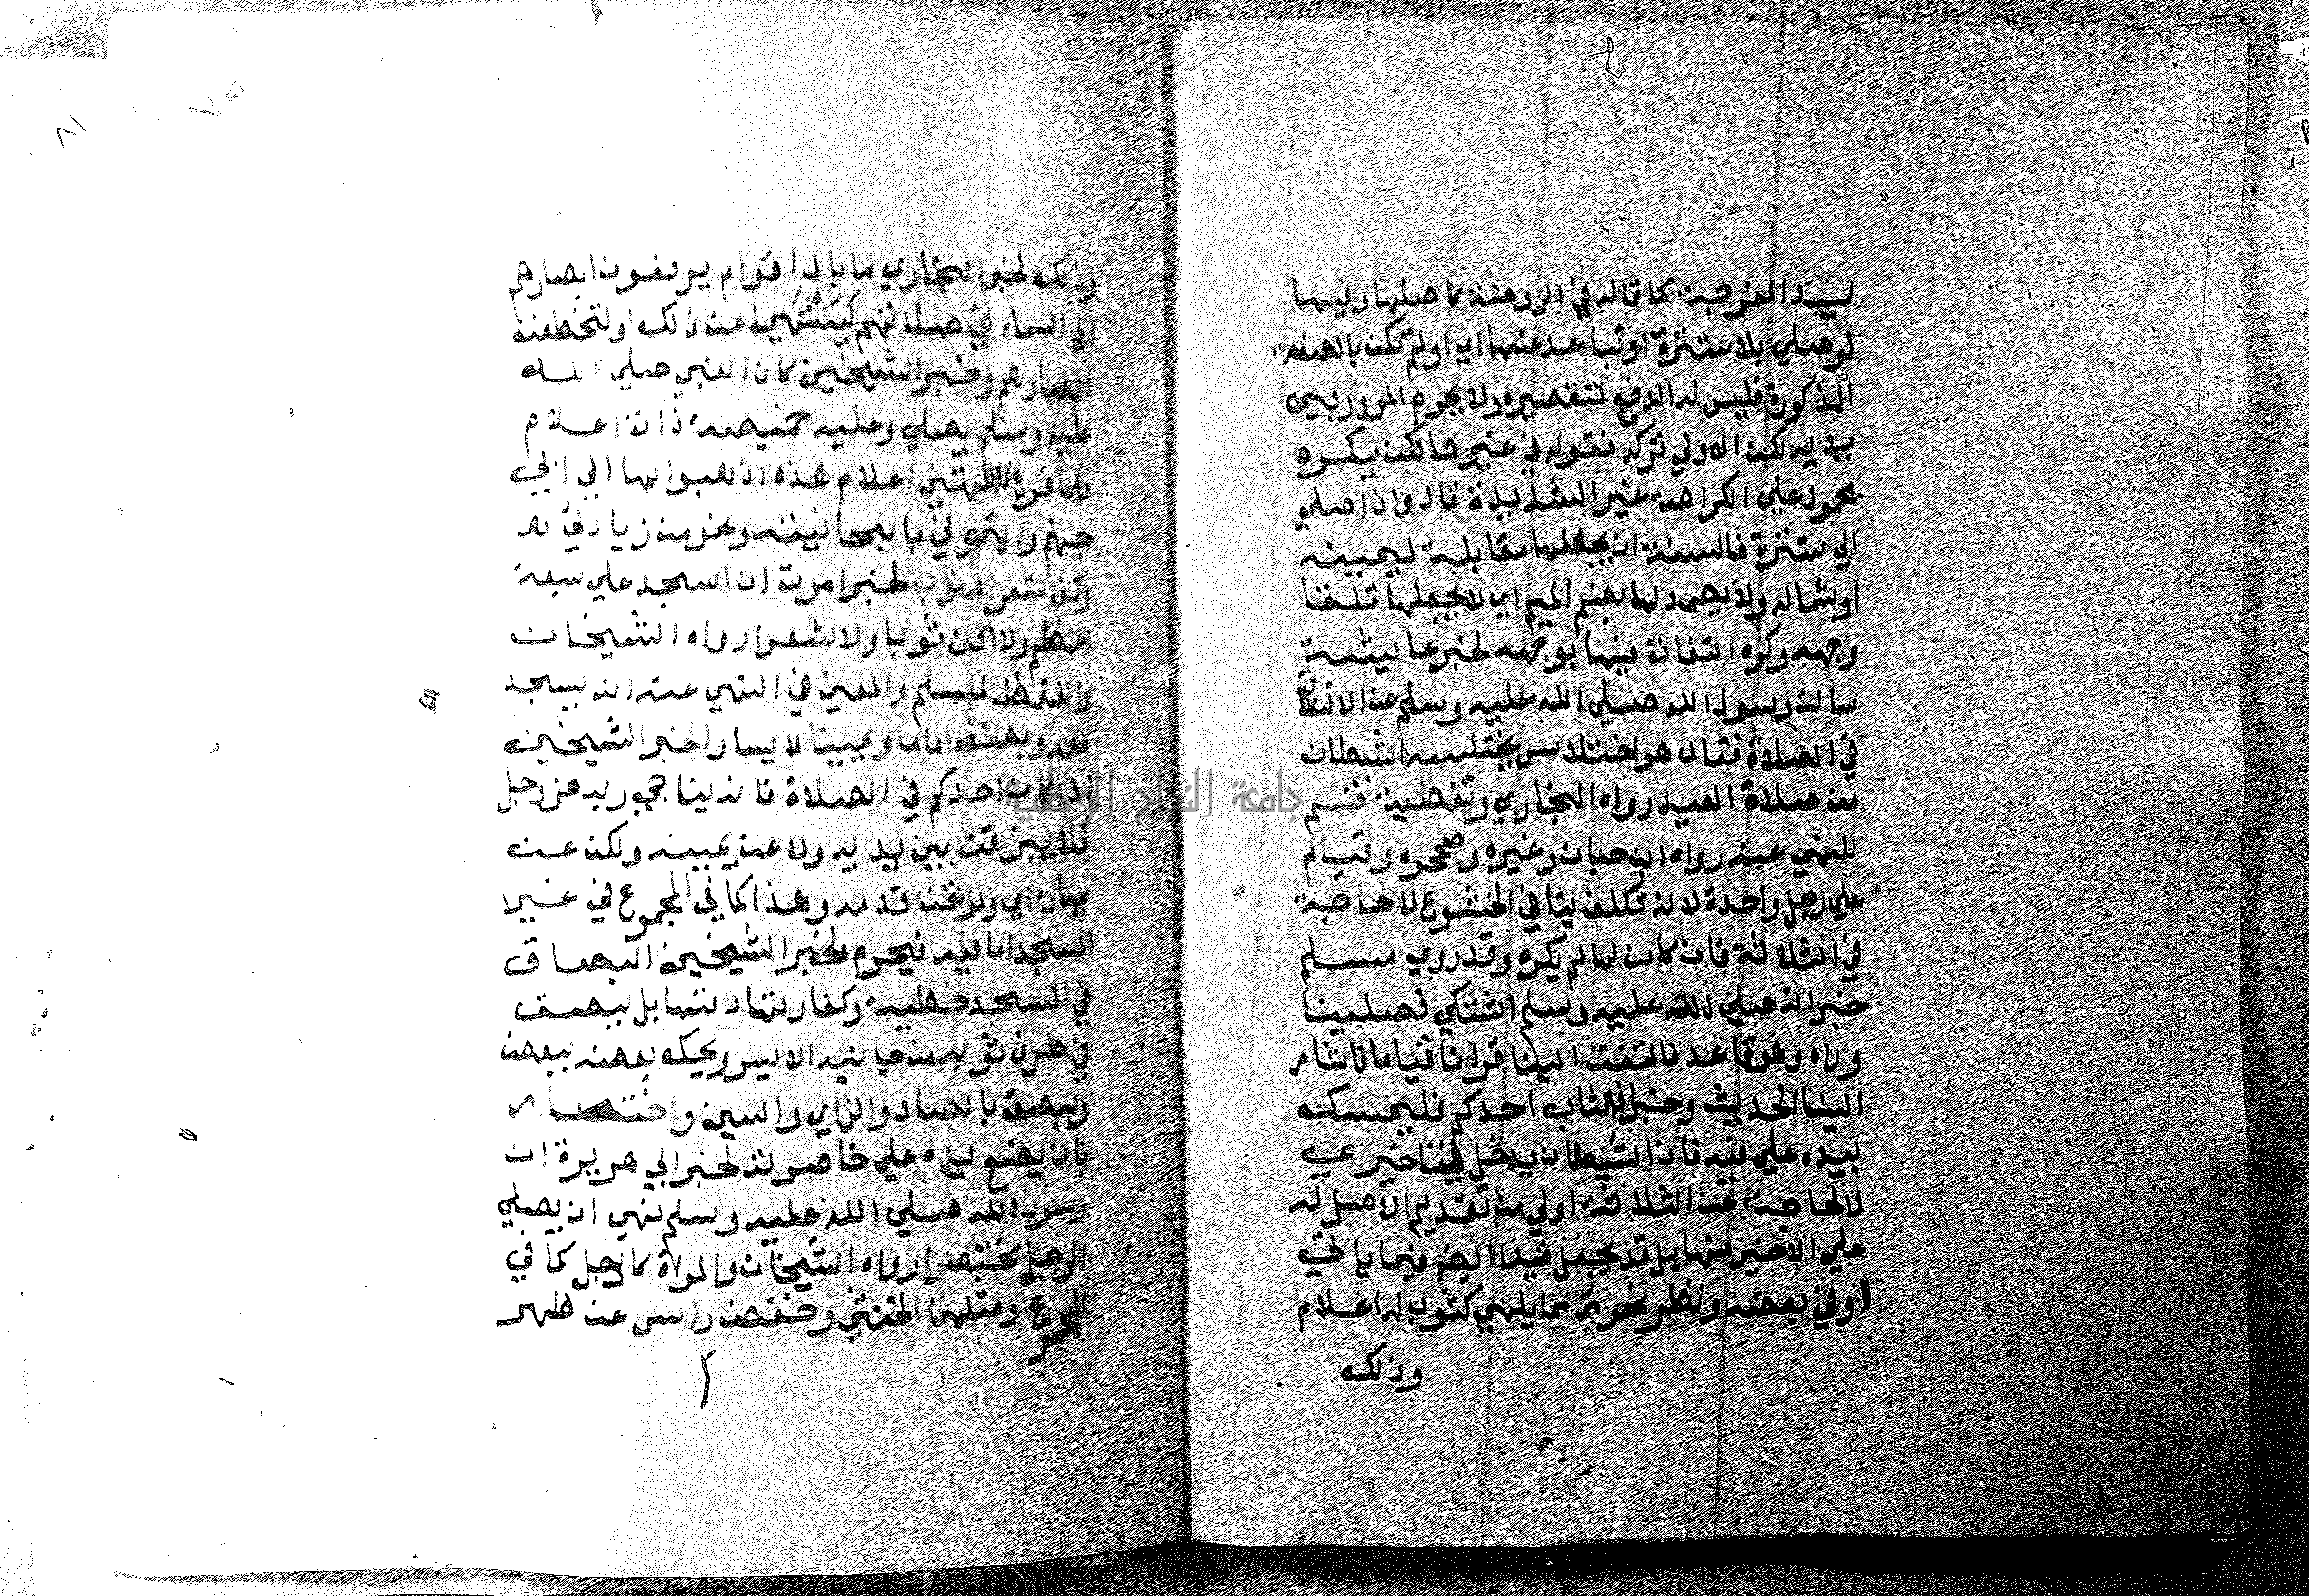 ليسد الفرجة كما قاله في الروضة كاصلها وفيها
لو صلي بلا سترة او تباعد عنها اي او لم تكن بالصفة
المذكورة فليس له الدفع لتقصيره ولا يحرم المرور بين
يديه لكن الاولي تركه فقوله في غيرها لكن يكره
محمول علي الكراهة غير الشديدة قال واذا صلي
الي سترة فالسنة ان يجعلها مقابلة ليمينه
او شماله ولا يصمد لها بضم الميم اي لا يجعلها تلقا
وجهه وكره التفات فيها بوجهه لخبر عايشة
سالت رسول الله صلي الله عليه وسلم عن الالتفات
في الصلاة فقال هو اختلاس يختلسه الشيطان
من صلاة العبد رواه البخاري وتغطية فم
للنهي عنه رواه ابن حبان وغيره وصححوه وقيام
علي رجل واحدة لانه تكلف ينافي الخشوع لا لحاجة
في الثلاثة فان كان لها لم يكره وقد روي مسلم
خبر انه صلي الله عليه وسلم اشتكي فصلينا
وراه وهو قاعد فالتفت الينا فرانا قياما فاشار
الينا الحديث وخبر اذا تثاب احدكم فليمسك
بيده علي فيه فان الشيطان يدخل فتاخير عن
لا لحاجة عن الثلاثة اولي من تقديم الاصل له
علي الاخير منها بل قد يجعل قيدا ايضا فيما ياتي
او في بعضه ونظر نحو سما مما يلهي كثوب له اعلام
وذلك
٨١
وذلك لخبر البخاري ما بال اقوام يرفعون ابصارهم
الي السماء في صلاتهم لينتهين عن ذلك او لتخطفن
ابصارهم وخبر الشيخين كان النبي صلي الله
عليه وسلم يصلي وعليه خميصة ذات اعلام
فلما فرغ قال الهتني اعلام هذه اذهبوا بها الي ابي
جهم وايتوني بانبجانيته ونحو من زيادتي
وكف شعر او ثوب لخبر امرت ان اسجد علي سبعة
اعظم ولا اكف ثوبا ولا شعرا رواه الشيخان
واللفظ لمسلم والمعني في النهي عنه انه يسجد
معه وبصق اماما ويمينا لا يسارا لخبر الشيخين
اذا كان احدكم في الصلاة فانه يناجي ربه عز وجل
فلا يبزقن بين يديه ولا عن يمينه ولكن عن
يساره اي ولو تحت قدمه وهذا كما في المجموع في غير
المسجد اما فيه فيحرم لخبر الشيخين البصاق
في المسجد خطيية وكفارتها دفنها بل يبصق
في طرف ثوبه من جانبه الايسر ويحك بعضه ببعض
ويبصق بالصاد والزاي والسين واختصار
بان يضع يده علي خاصرته لخبر ابي هريرة ان
رسول الله صلي الله عليه وسلم نهي ان يصلي
الرجل مختصرا رواه الشيخان والمراة كالرجل كما في
المجموع ومثلهما الخنثي وخفض راس عن ظهر
جامعة النجاح الوطنية